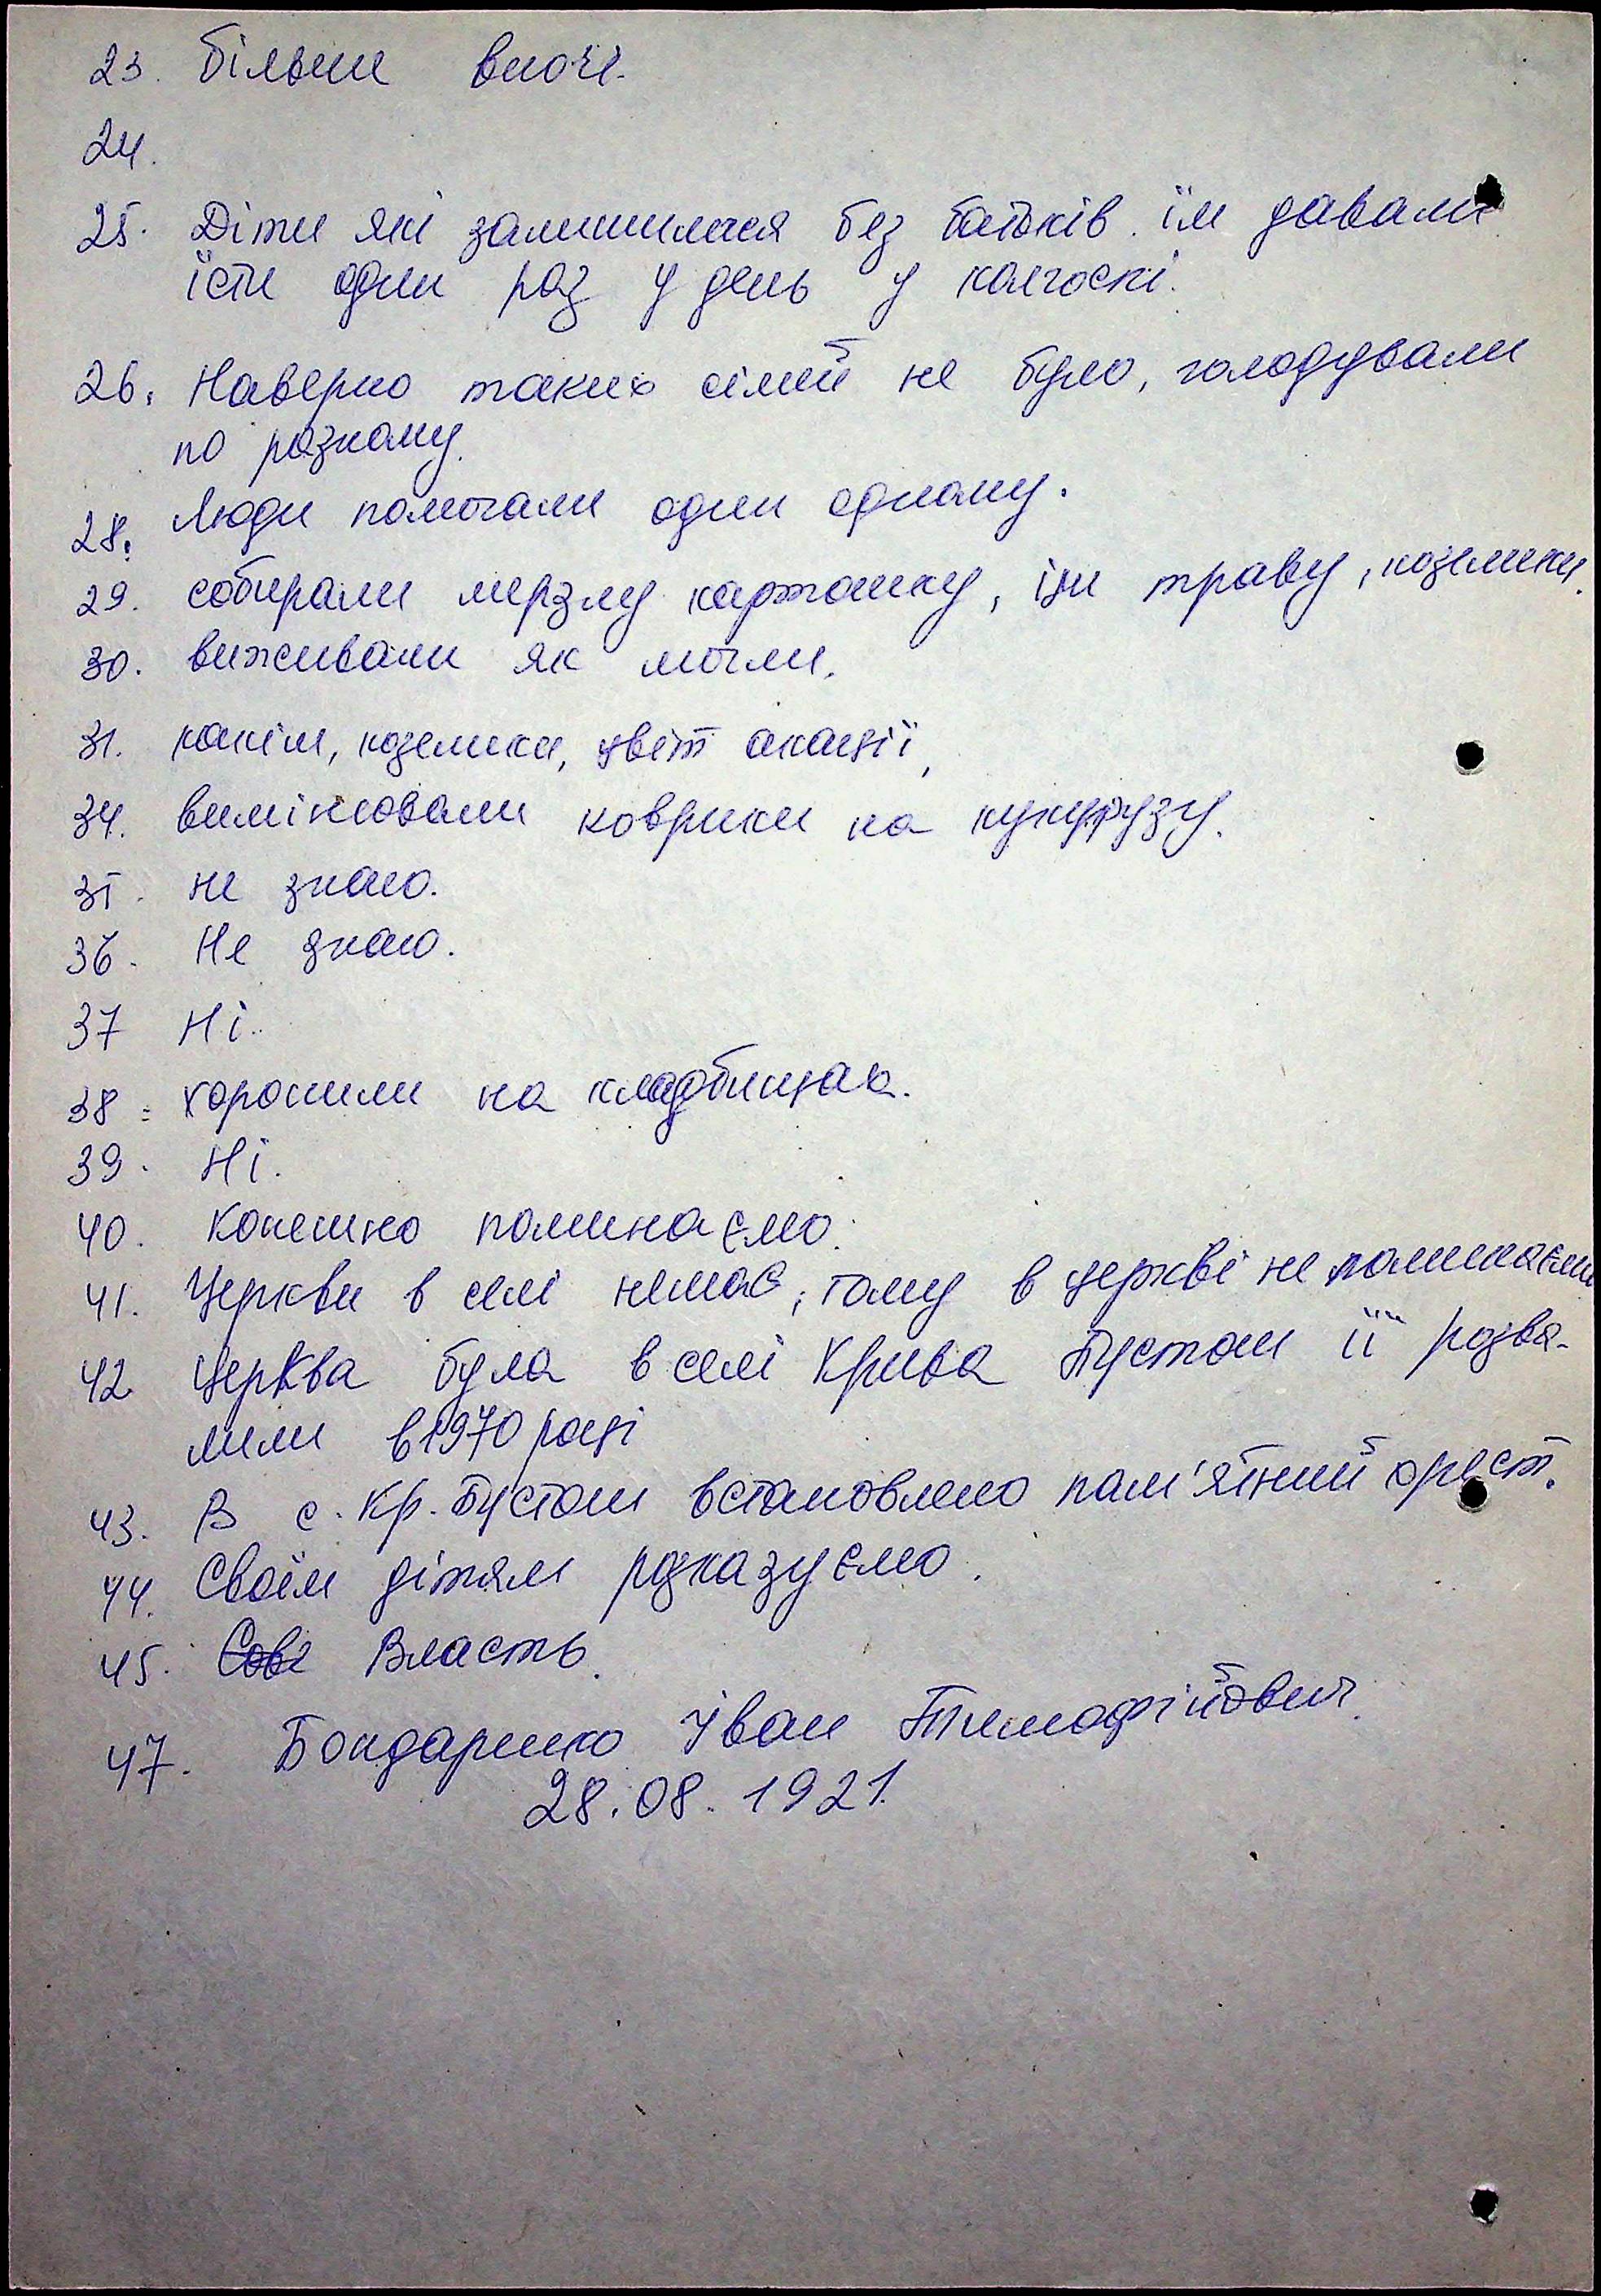 23. більше вночі.
24.
25. Діти які залишилися без батьків. їм давали
їсти один раз у день у колгоспі.
26. Наверно таких сімей не було, голодували
по разному.
28. Люди помогали один одному.
29. собирали мерзлу картошку, їли траву, козелики.
30. виживали як могли.
31. калачики, козелики, цвіт акації,
34. вимінювали коврики на кукурузу.
35. не знаю.
36. Не знаю.
37 Ні.
38. хоронили на кладбищах.
39. Ні.
40. Конешно поминаємо.
41. Церкви в селі немає, тому в церкві не поминаємо
42 Церква була в селі Крива Пустош її розва-
лили в 1970 році
43. В с. Кр. Пустош встановлено пам'ятний хрест.
44. Своїм дітям розказуємо.
45. Сове Власть.
47. Бондаренко Іван Тимофійович.
28.08.1921.